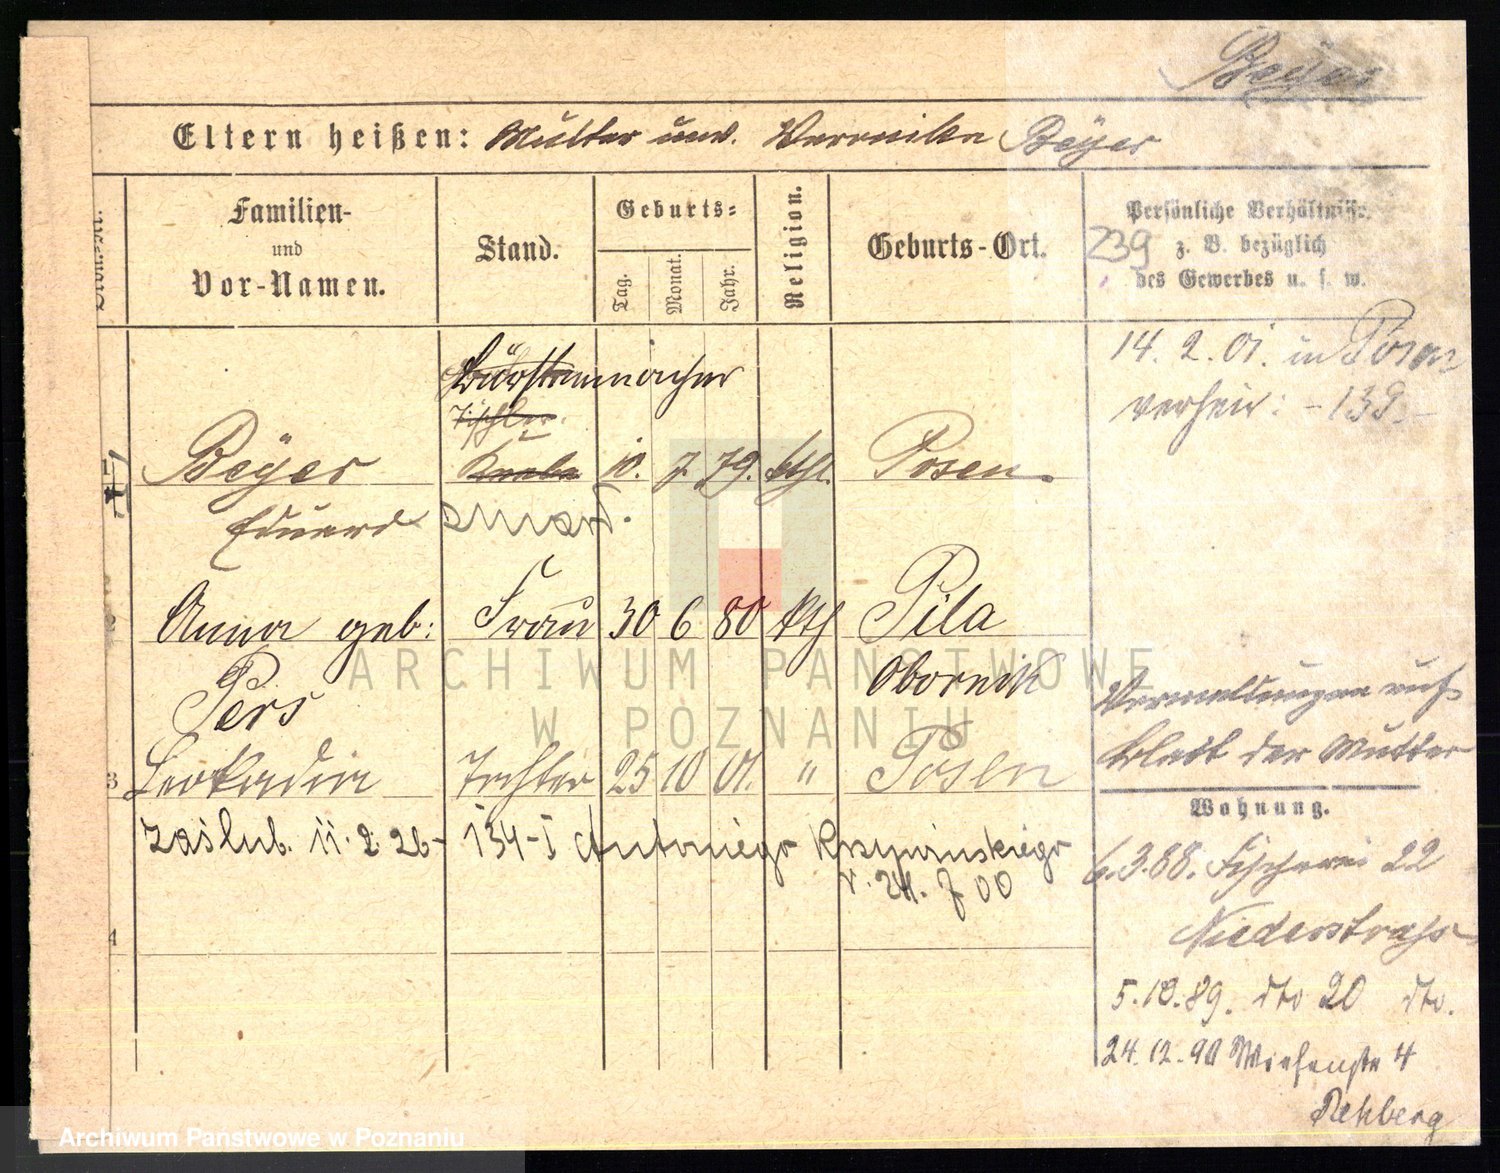 Beyer
Eltern heißen: Mutter unv. Veronika Beÿer
Familien-
und
Vor-Namen.
Stand.
Geburts=
Tag.
Monat.
Jahr.
Religion.
Geburts-Ort.
Persönliche Verhältnisse
z. B. bezüglich
des Gewerbes u. s. w.
239
14. 2. 01. in Posen
verheir: - 139. -
Bürstenmacher
Tischler.
Knabe
1 Beÿer 10. 7. 79. kthl. Posen.
Eduard
2 Anna geb: Frau 30 6 80 kth Pila
Pers Obornik
3 Leokadia Tochter 25 10 01. " Posen
zaślub. 11. 2. 26 - 134-I Antoniego Krzywinskiego
r. 24. 7 00
4
Vermeldungen auf
Blatt der Mutter
Wohnung.
6. 3. 88. Fischerei 22
Niederstrasse
5. 10. 89. dto 20 dto.
24. 12. 90 Wiesenstr 4
Rehberg
ARCHIWUM PAŃSTWOWE
W POZNANIU
Archiwum Państwowe w Poznaniu